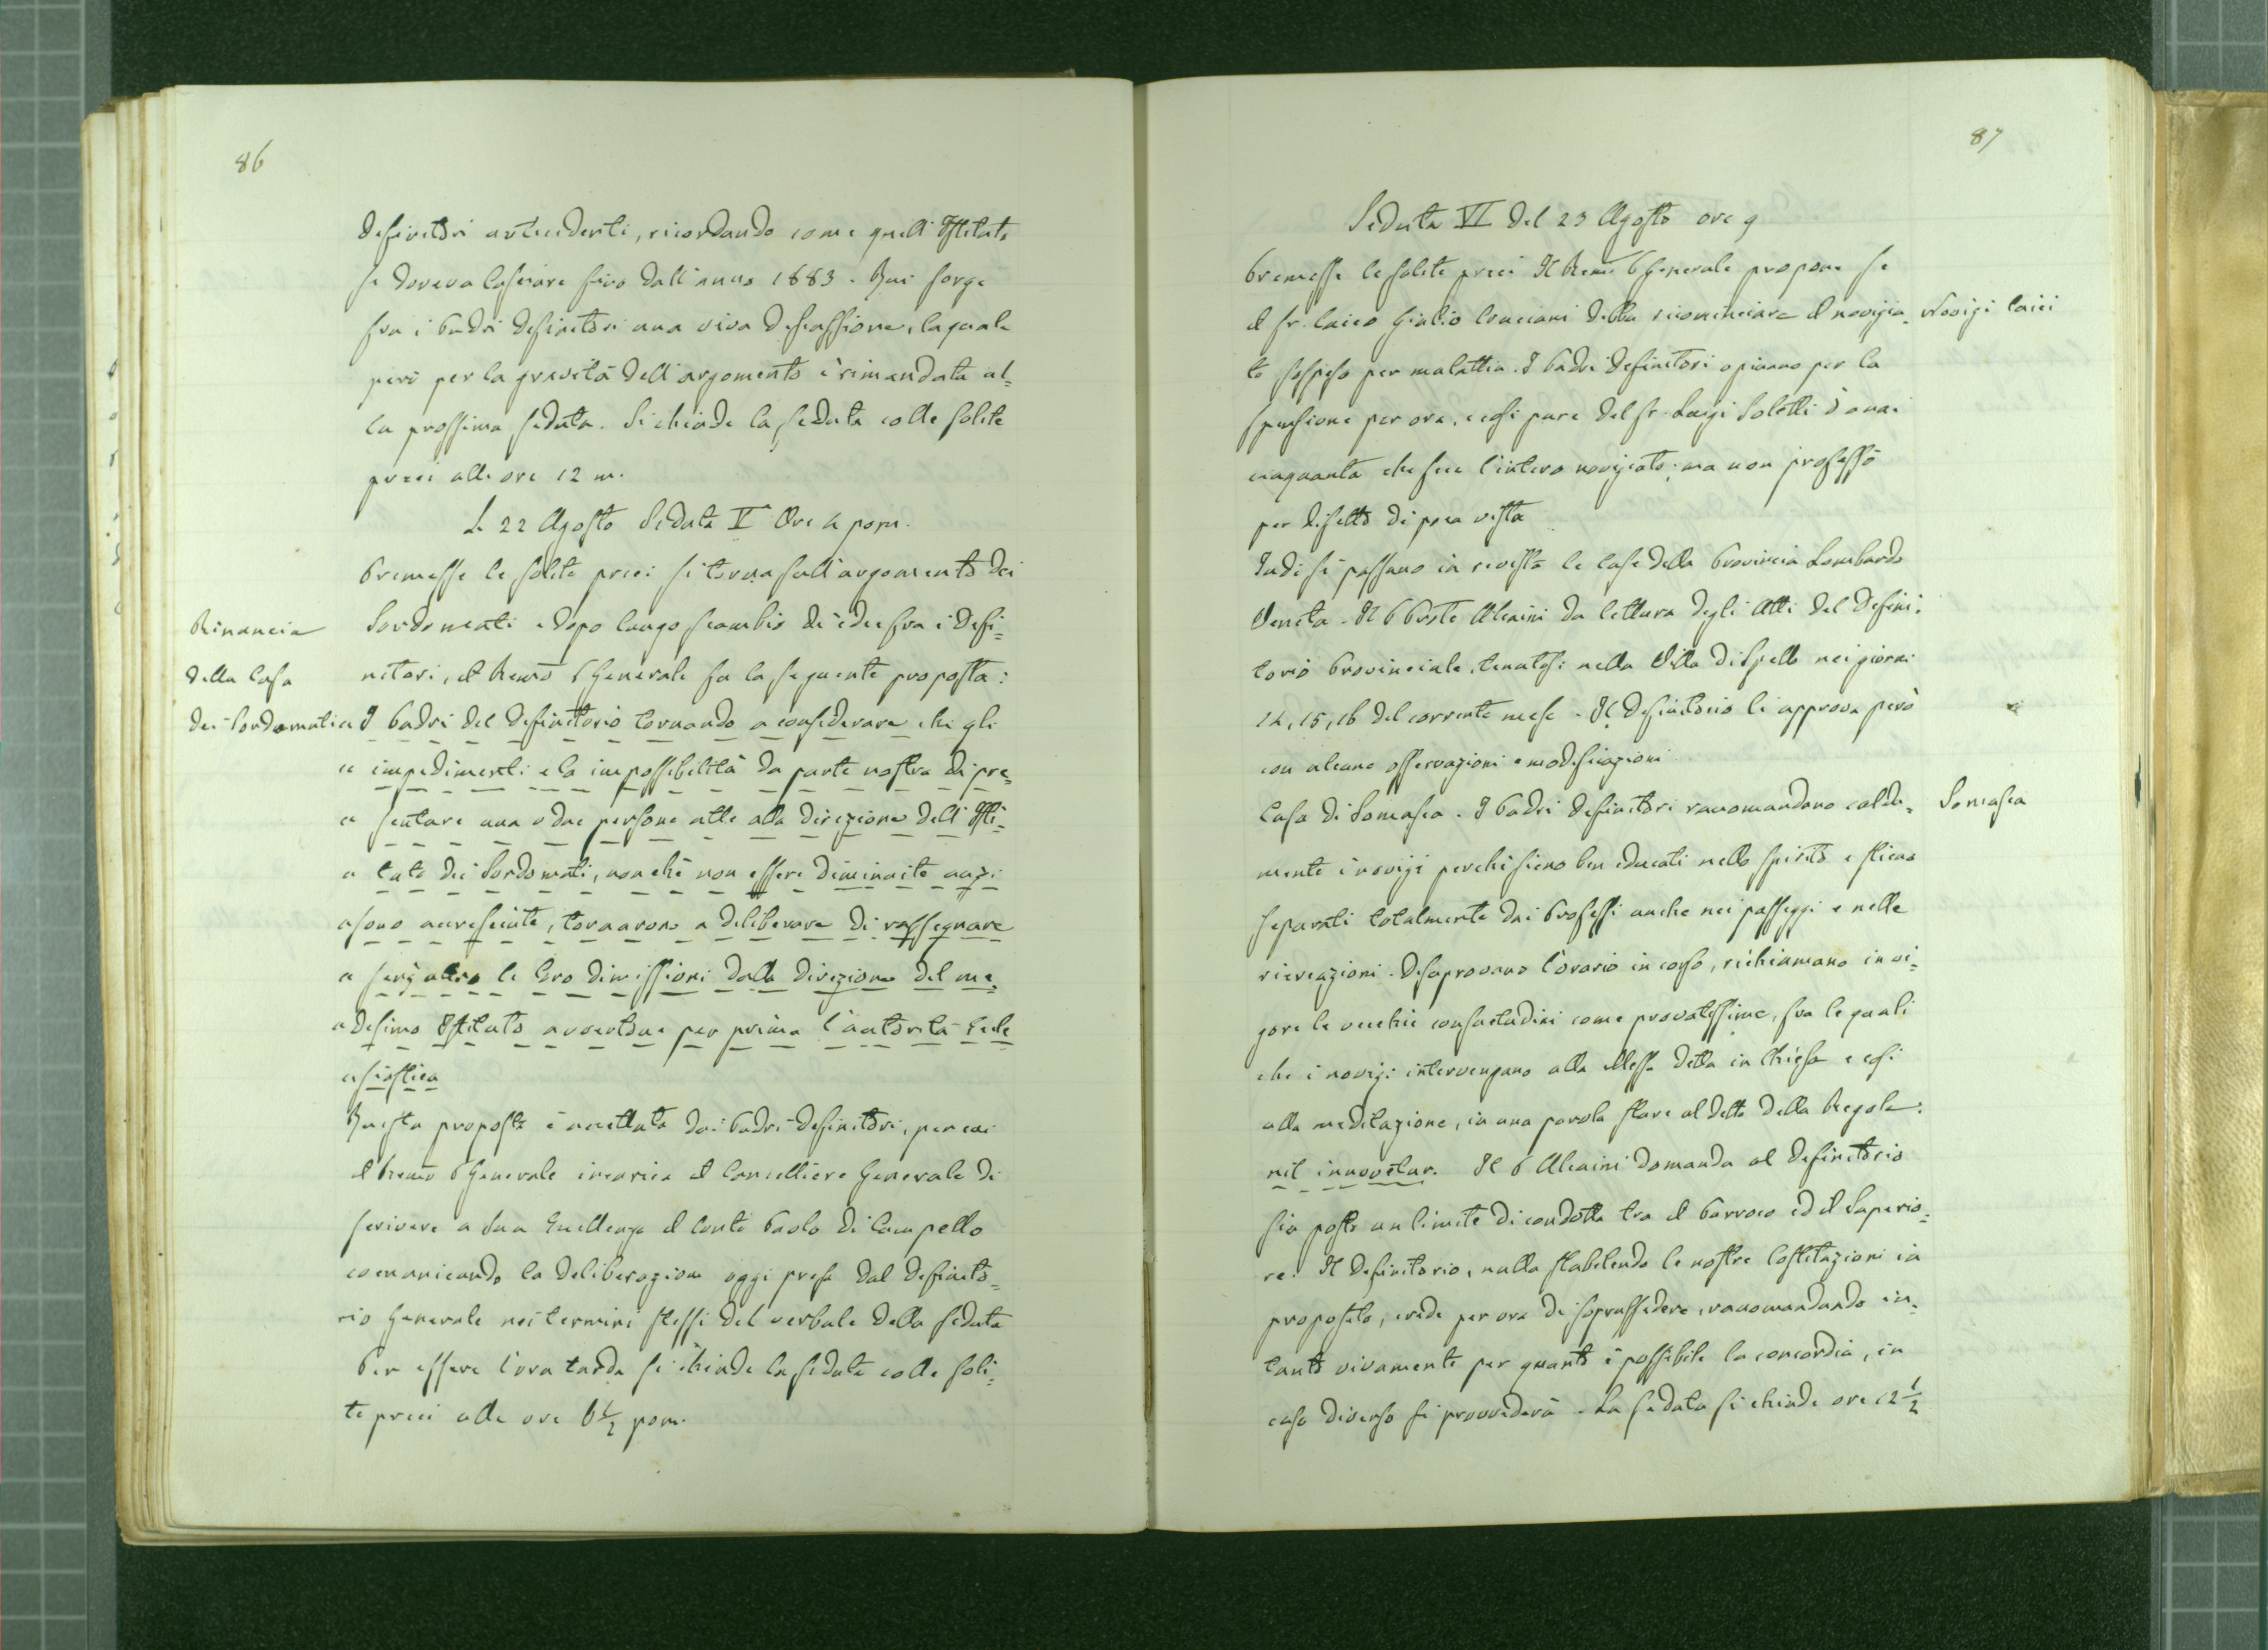 86
definitori antecedenti, ricordando come quell'Istituto
si doveva lasciare sino dall'anno 1883. Qui sorge
fra i Padri definitori una viva discussione, la quale
però per la gravità dell'argomento è rimandata al=
la prossima seduta. Si chiude la seduta colle solite
preci alle ore 12 m.
Li 22 Agosto Seduta Vª Ore 4 pom.
Premesse le solite preci si torna sull'argomento dei
Rinuncia
della Casa
dei Sordomuti
Sordomuti e dopo lungo scambio di idee fra i defi=
nitori, il Rem̃o P Generale fa la seguente proposta:
« I Padri del definitorio tornando a considerare che gli
« impedimenti e la impossibilità da parte nostra di pre=
« sentare una o due persone atte alla direzione dell'Isti=
« tuto dei Sordomuti, nonché non essere diminuite anzi
« sono accresciute, tornarono a deliberare di rassegnare
« senz'altro le loro dimissioni dalla direzione del me=
« desimo Istituto avvertone per prima l'autorità Eccle
« siastica
Questa proposta è accettata dai Padri definitori, per cui
il Rem̃o P Generale incarica il Cancelliere Generale di
scrivere a Sua Eccellenza il Conte Paolo di Campello
comunicando la deliberazione oggi presa dal definito=
rio Generale nei termini stessi del verbale della seduta
Per essere l'ora tarda si chiude la seduta colle soli=
te preci alle ore 6 1/2 pom.
87
Seduta VI del 23 Agosto ore 9
Premesse le solite preci Il Rem̃o P Generale propone se
il fr. laico Giulio Conciani debba ricominciare il novizia=
Novizi laici
to sospeso per malattia. I Padri definitori opinano per la
spensione per ora, e così pure del fr. Luigi Soletti d'anni
cinquanta che fece l'intero noviziato; ma non professò
per difetto di poca vista
Indi si passano in rivista le case della Provincia Lombardo
Veneta. Il P Prͦste Alcaini da lettura degli Atti del defini=
torio Provinciale, tenutosi nella Villa di Spello nei giorni
14, 15, 16 del corrente mese. Il definitorio li approva però
con alcune osservazioni e modificazioni
Casa di Somasca. I Padri definitori raccomandano calda=
Somasca
mente i novizi perchè sieno ben educati nello spirito e stieno
separati totalmente dai Professi anche nei passeggi e nelle
ricreazioni. Disaprovano l'orario in corso, richiamano in vi=
gore le vecchie consuetudini come provatissime, fra le quali
che i novizi intervengano alla Messa detta in Chiesa e così
alla meditazione, in una parola stare al detto della Regola:
nil innovetur. Il P Alcaini domanda al definitorio
sia posto un limite di condotta tra il Parroco ed il Superio=
re. Il definitorio, nulla stabilendo le nostre Costituzioni in
proposito, crede per ora di soprassedere, raccomandando in=
tanto vivamente per quanto è possibile la concordia, in
caso diverso si provvederà. La seduta si chiude ore 12 1/2